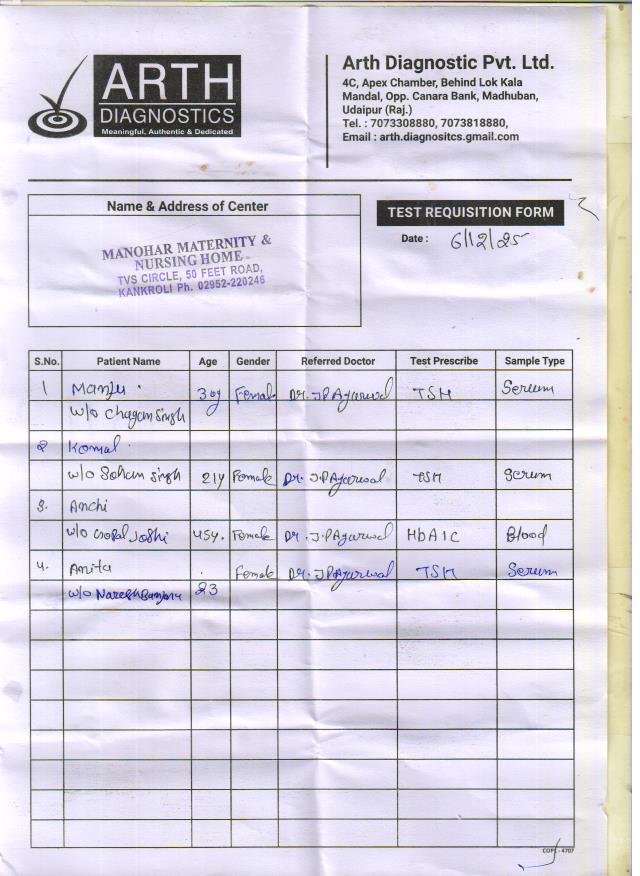 ARTH
DIAGNOSTICS
Meaningful, Authentic & Dedicated
Arth Diagnostic Pvt. Ltd.
4C, Apex Chamber, Behind Lok Kala
Mandal, Opp. Canara Bank, Madhuban,
Udaipur (Raj.)
Tel. : 7073308880, 7073818880,
Email : arth.diagnositcs.gmail.com
Name & Address of Center
MANOHAR MATERNITY &
NURSING HOME
TVS CIRCLE, 50 FEET ROAD,
KANKROLI Ph. 02952-220246
TEST REQUISITION FORM
Date : 6/12/25
S.No. Patient Name Age Gender Referred Doctor Test Prescribe Sample Type
1 Manju Female Dr. J P Agarwal TSH Serum
w/o Chagan Singh
2 Komal
w/o Sohan Singh 21y Female Dr. J.P Agarwal TSH Serum
3. Anchi
w/o Gopal Joshi 45y. Female Dr. J.P Agarwal HbA1C Blood
4. Anita Female Dr. J P Agarwal TSH Serum
w/o Naresh Banjara 23
COPL - 4707